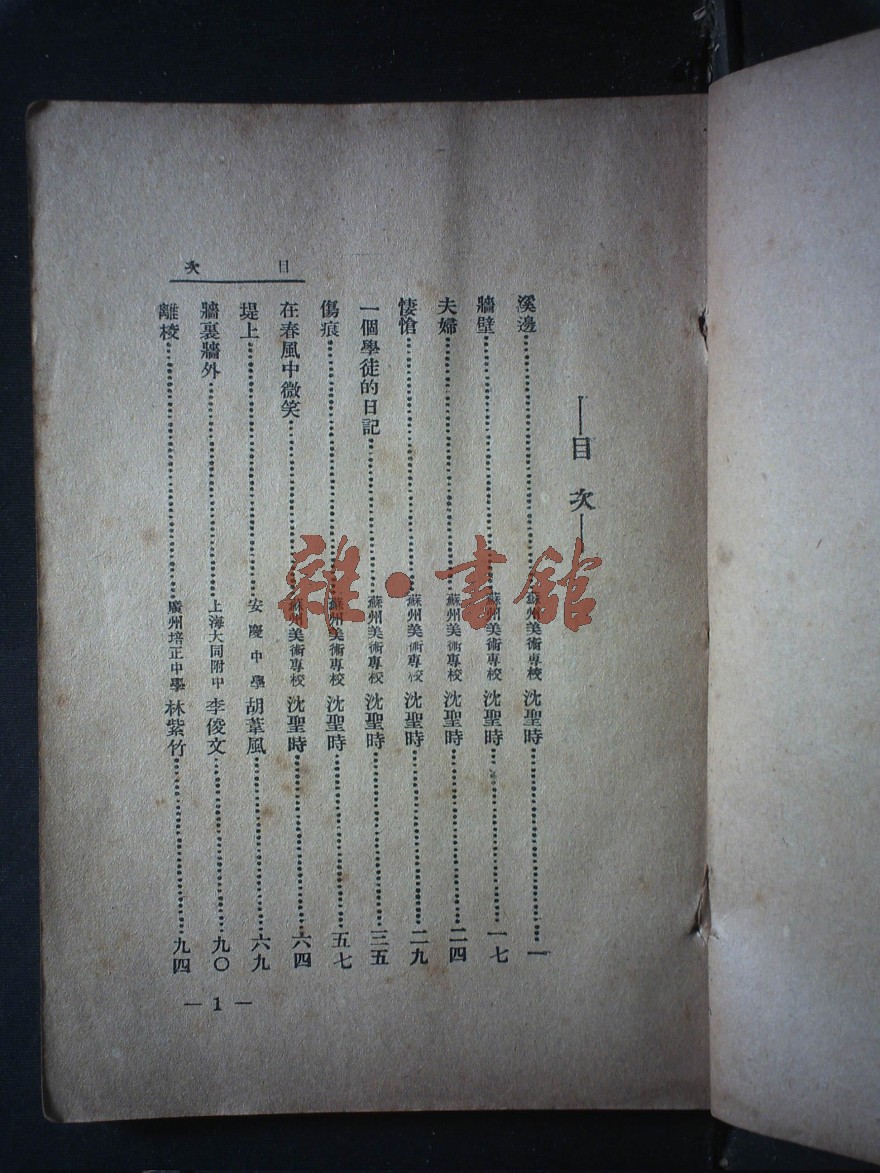 目次
——目 次——
溪邊……蘇州美術專校 沈聖時……一
牆壁……蘇州美術專校 沈聖時……一七
夫婦……蘇州美術專校 沈聖時……二四
悽愴……蘇州美術專校 沈聖時……二九
一個學徒的日記……蘇州美術專校 沈聖時……三五
傷痕……蘇州美術專校 沈聖時……五七
在春風中微笑……蘇州美術專校 沈聖時……六四
堤上……安慶中學 胡葦風……六九
牆裏牆外……上海大同附中 李俊文……九〇
離棱……廣州培正中學 林紫竹……九四
— 1 —
雜·書館